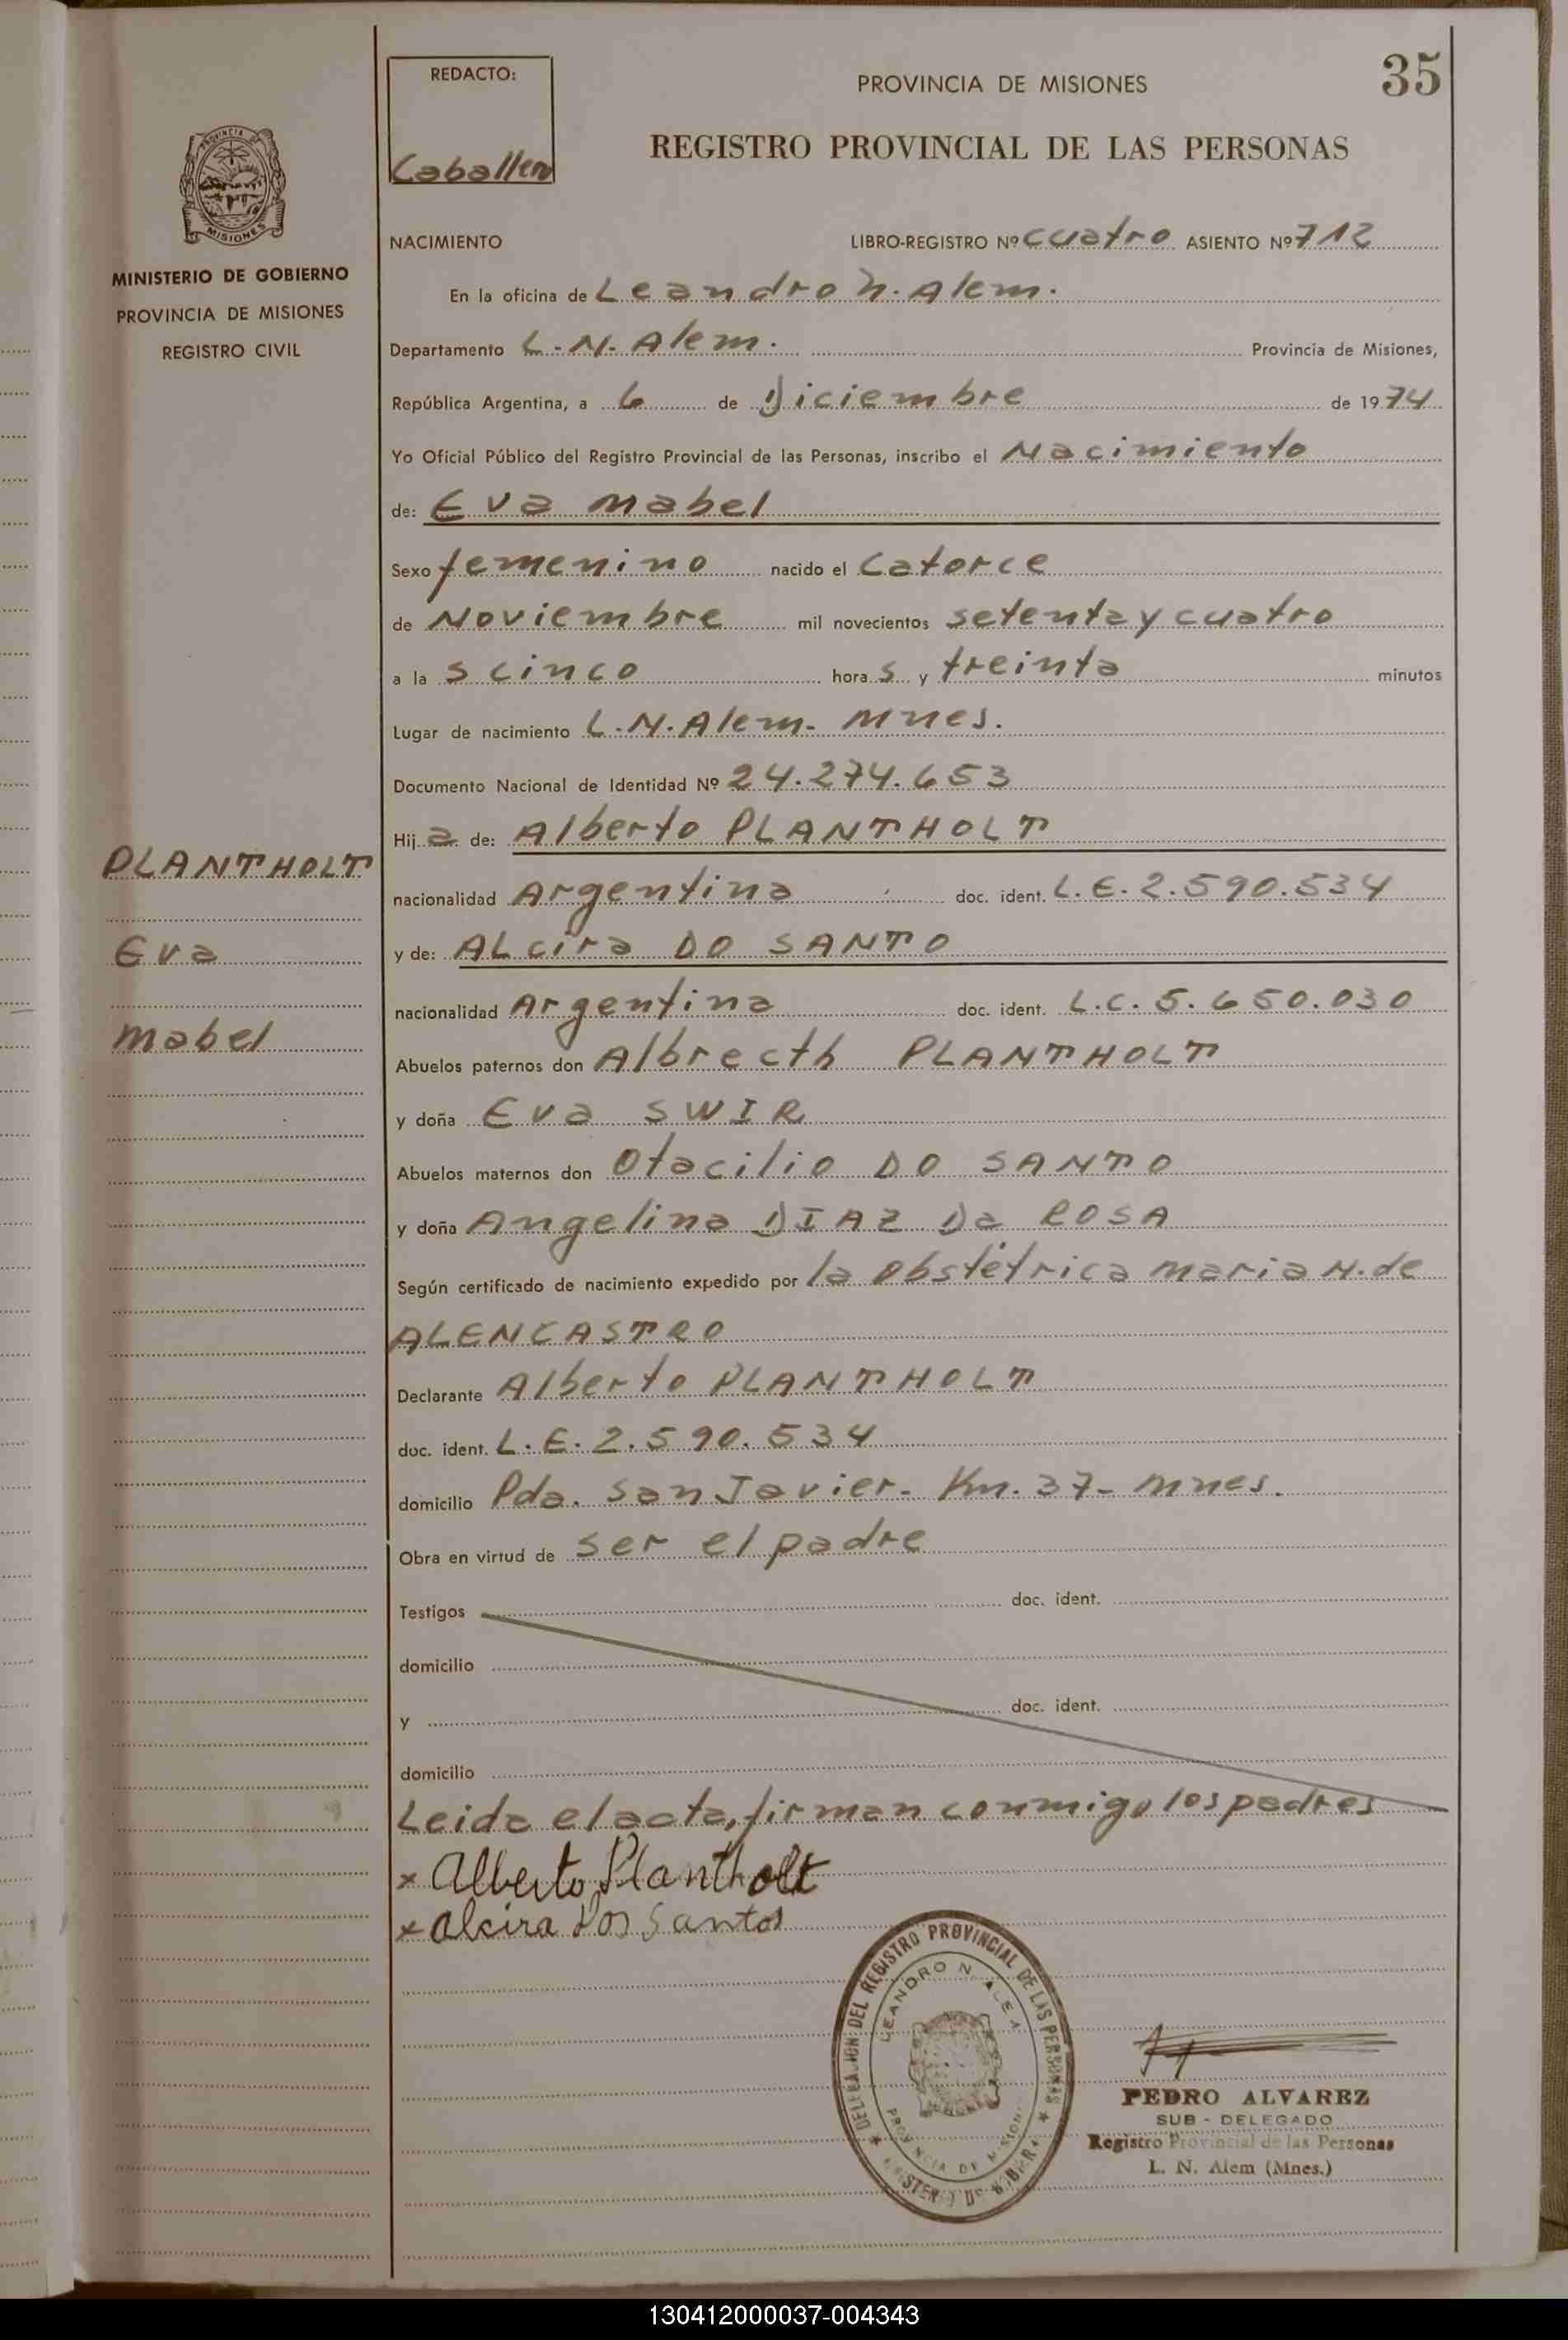 35
REDACTO:
Caballero
PROVINCIA DE MISIONES
REGISTRO PROVINCIAL DE LAS PERSONAS
PROVINCIA DE
MISIONES
MINISTERIO DE GOBIERNO
PROVINCIA DE MISIONES
REGISTRO CIVIL
NACIMIENTO LIBRO-REGISTRO Nº cuatro ASIENTO Nº 712
En la oficina de Leandro N. Alem.
Departamento L.N. Alem. Provincia de Misiones,
República Argentina, a 6 de Diciembre de 1974
Yo Oficial Público del Registro Provincial de las Personas, inscribo el Nacimiento
de: Eva Mabel
Sexo femenino nacido el Catorce
de Noviembre mil novecientos setenta y cuatro
a las cinco horas y treinta minutos
Lugar de nacimiento L.N. Alem- Mnes.
Documento Nacional de Identidad Nº 24.274.653
Hija de: Alberto PLANTHOLT
nacionalidad Argentina doc. ident. L.E. 2.590.534
y de: ALcira DO SANTO
nacionalidad Argentina doc. ident. L.C. 5.650.030
Abuelos paternos don Albrecth PLANTHOLT
y doña Eva SWIR
Abuelos maternos don Otacilio DO SANTO
y doña Angelina DIAZ Da ROSA
Según certificado de nacimiento expedido por la obstétrica Maria N. de
ALENCASTRO
Declarante Alberto PLANTHOLT
doc. ident. L.E. 2.590.534
domicilio Pda. San Javier- Km. 37- Mnes.
Obra en virtud de ser el padre
Testigos doc. ident.
domicilio
y doc. ident.
domicilio
Leida el acta, firman conmigo los padres
x Alberto Plantholt
x Alcira Dos Santos
PLANTHOLT
Eva
Mabel
DELEGACION DEL REGISTRO PROVINCIAL DE LAS PERSONAS
LEANDRO N. ALEM
PROVINCIA DE MISIONES
MINISTERIO DE GOBIERNO
PEDRO ALVAREZ
SUB - DELEGADO
Registro Provincial de las Personas
L. N. Alem (Mnes.)
130412000037-004343